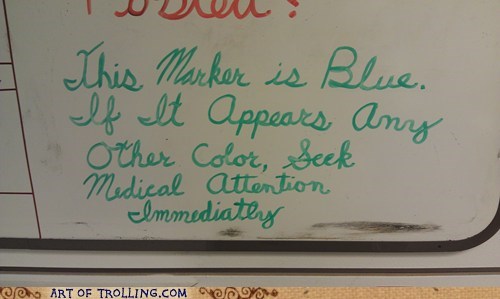 This Marker is Blue.
If It Appears Any
Other Color, Seek
Medical Attention
Immediatly
ART OF TROLLING.COM